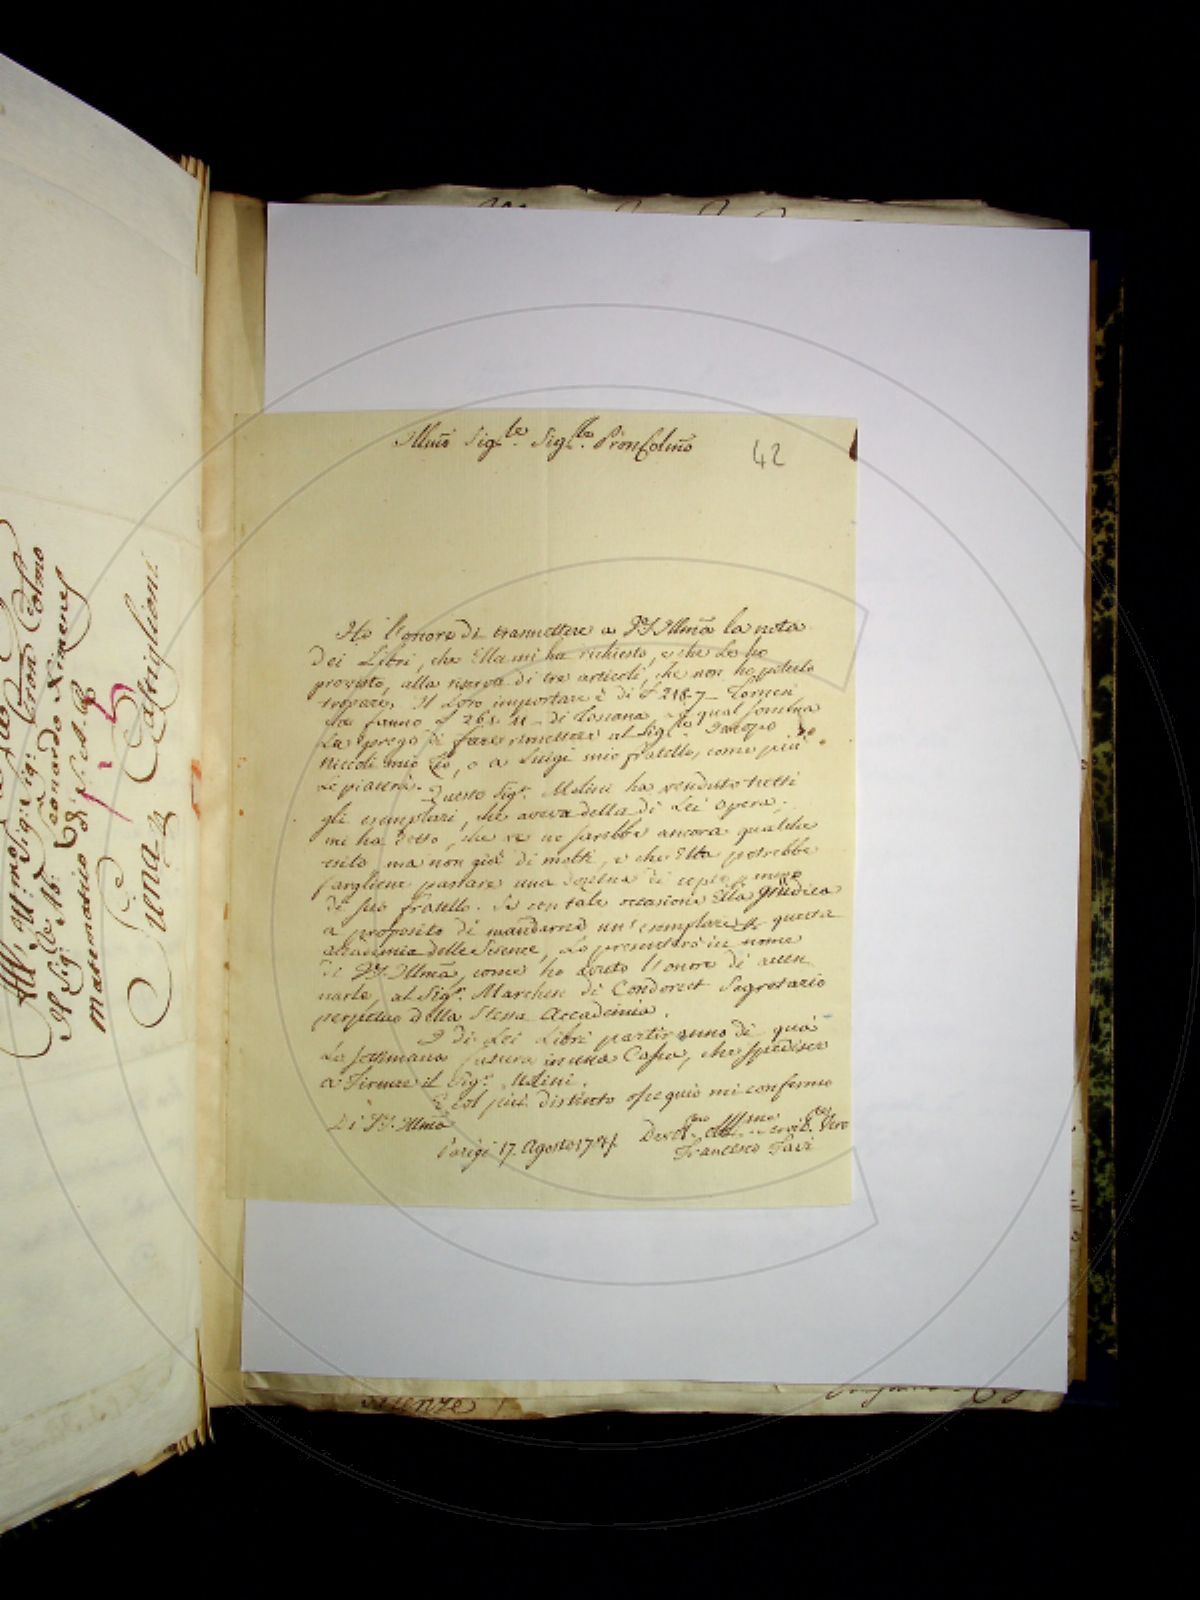 Illmo Sigre. Sigre. Pron Colmo
42
Ho l'onore di trasmettere a VS Illma la nota
dei Libri, che Ella mi ha richiesto, e che Le ho
provisto, alla riserva di tre articoli, che non ho potuto
trovare. Il loro importare è di £ 218.7 Tornesi
che fanno £ 261.11 di Toscana, qual somma
La prego di fare rimettere al Sigre Jacopo
Niccoli mio Zio, o a Luigi mio fratello, come più
Le piacerà. Questo Sigr. Molini ha venduto tutti
gli esemplari, che aveva della di Lei opera;
mi ha detto, che ve ne sarebbe ancora qualche
esito ma non già di molti, e che Ella potrebbe
fargliene passare una dozzina di copie p. mezzo
di suo fratello. Se con tale occasione Ella giudica
a proposito di mandarne un'esemplare p. questa
accademia delle Scienze, Lo presenterò in nome
di VS. Illma, come ho avuto l'onore di accen
narle, al Sigr. Marchese di Condorcet Segretario
perpetuo della stessa Accademia.
I di Lei Libri partiranno di quà
La settimana futura in una Cassa, che spedisce
a Firenze il Sigr. Molini.
E col più distinto ossequio mi confermo
Di VS. Illma
Parigi 17. Agosto
Francesco Favi
All' Illmo Sig: Sig: Pron Colmo
Il Sig: Ab: Leonardo Ximenes
Matematico di S. A. R.
Siena
Castiglioni
Firenze